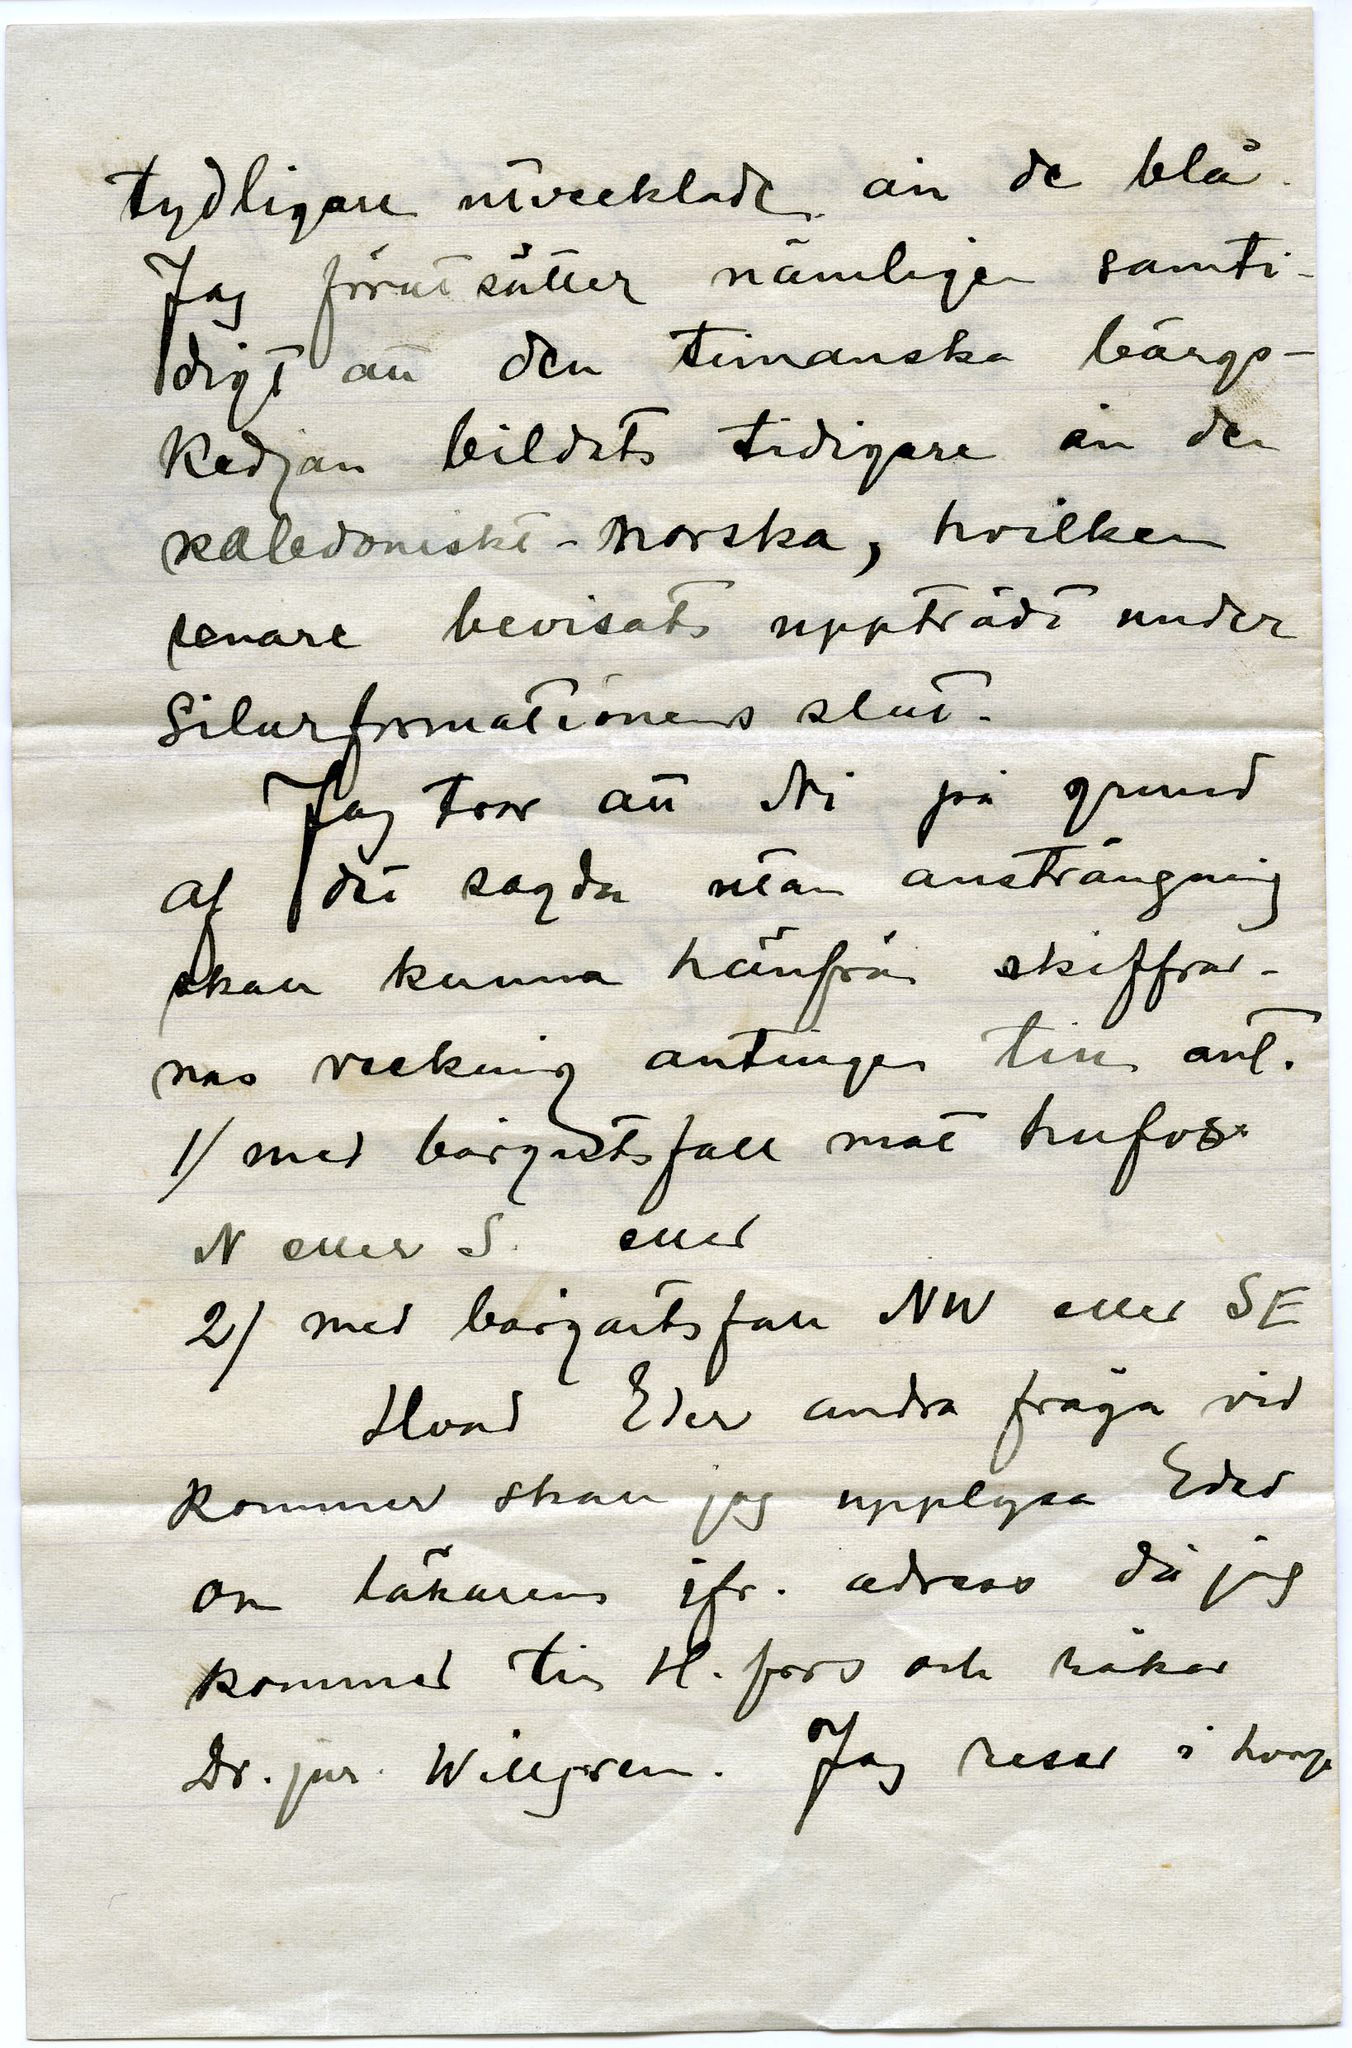 tydligare utvecklade än de blå.
Jag förutsätter nämligen samti-
digt att den timanska bärgs-
kedjan bildats tidigare än den
kaledoniskt-norska, hvilken
senare bevisats uppträdt under
Silurformationens slut.
Jag tror att Ni på grund
af det sagda utan ansträngning
skall kunna hänföra skiffrar-
nas veckning antingen till ant.
1/ med bärgartsfall mot hufvs.
N eller S. eller
2/ med bärgartsfall NW eller SE
Hvad Eder andra fråga vid
kommer skall jag upplysa Eder
om läkarens ifr. adress då jag
kommer till H.fors och råkar
Dr. jur. Willgren. Jag reser i